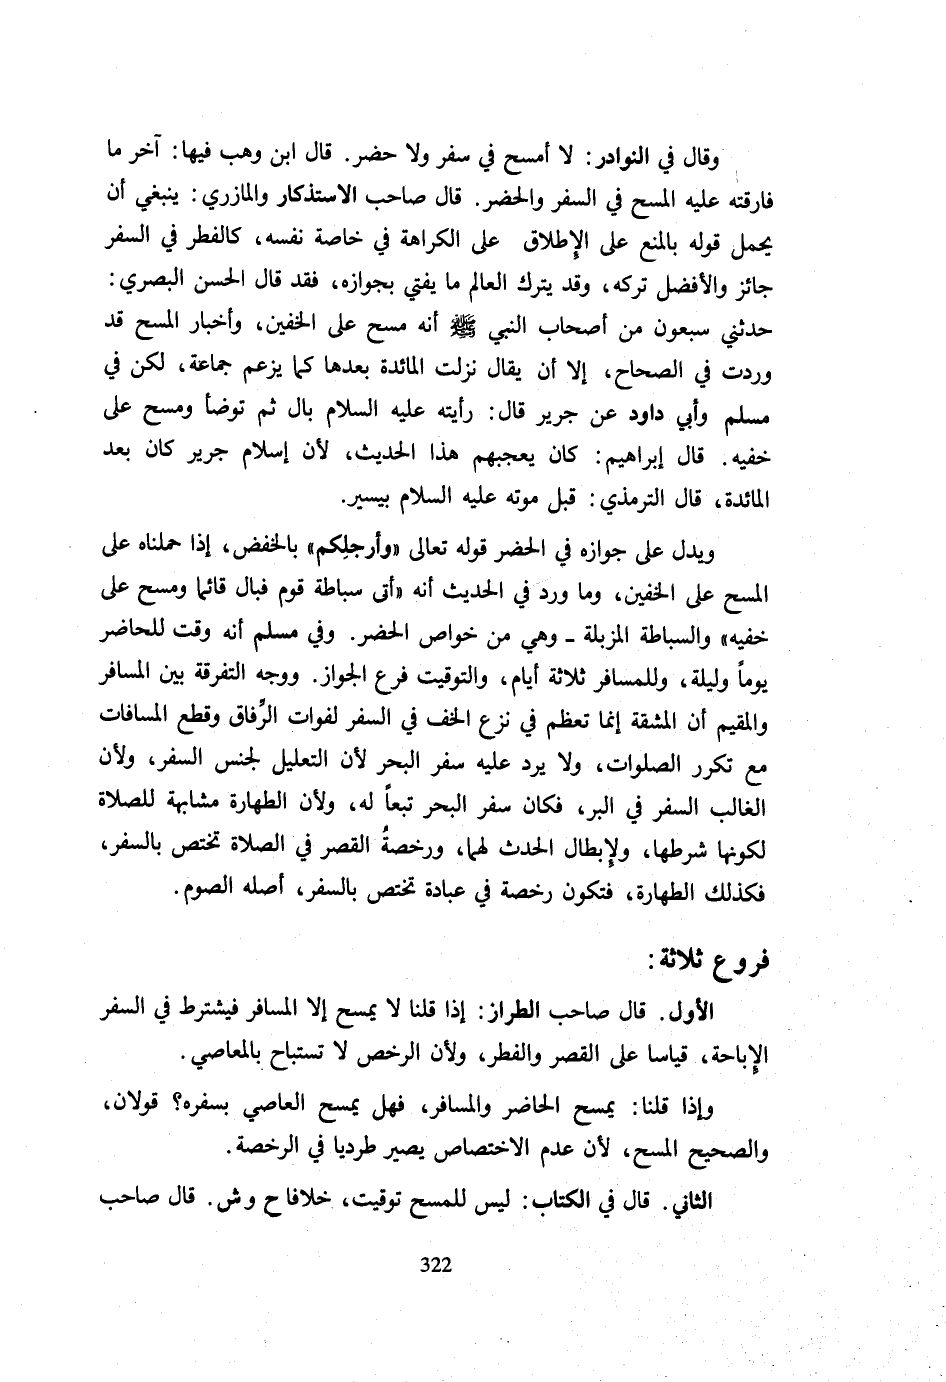 وقال في النوادر: لا أمسح في سفر ولا حضر. قال ابن وهب فيها: آخر ما
فارقته عليه المسح في السفر والحضر. قال صاحب الاستذكار والمازري: ينبغي أن
يحمل قوله بالمنع على الإطلاق على الكراهة في خاصة نفسه، كالفطر في السفر
جائز والأفضل تركه، وقد يترك العالم ما يفتي بجوازه، فقد قال الحسن البصري:
حدثني سبعون من أصحاب النبي ﷺ أنه مسح على الخفين، وأخبار المسح قد
وردت في الصحاح، إلا أن يقال نزلت المائدة بعدها كما يزعم جماعة، لكن في
مسلم وأبي داود عن جرير قال: رأيته عليه السلام بال ثم توضأ ومسح على
خفيه. قال إبراهيم: كان يعجبهم هذا الحديث، لأن إسلام جرير كان بعد
المائدة، قال الترمذي: قبل موته عليه السلام بيسير.
ويدل على جوازه في الحضر قوله تعالى «وأرجلِكم» بالخفض، إذا حملناه على
المسح على الخفين، وما ورد في الحديث أنه «أتى سباطة قوم فبال قائما ومسح على
خفيه» والسباطة المزبلة ـ وهي من خواص الحضر. وفي مسلم أنه وقت للحاضر
يوماً وليلة، وللمسافر ثلاثة أيام، والتوقيت فرع الجواز. ووجه التفرقة بين المسافر
والمقيم أن المشقة إنما تعظم في نزع الخف في السفر لفوات الرِّفاق وقطع المسافات
مع تكرر الصلوات، ولا يرد عليه سفر البحر لأن التعليل لجنس السفر، ولأن
الغالب السفر في البر، فكان سفر البحر تبعاً له، ولأن الطهارة مشابهة للصلاة
لكونها شرطها، ولإبطال الحدث لهما، ورخصةُ القصر في الصلاة تختص بالسفر،
فكذلك الطهارة، فتكون رخصة في عبادة تختص بالسفر، أصله الصوم.
فروع ثلاثة:
الأول. قال صاحب الطراز: إذا قلنا لا يمسح إلا المسافر فيشترط في السفر
الإباحة، قياسا على القصر والفطر، ولأن الرخص لا تستباح بالمعاصي.
وإذا قلنا: يمسح الحاضر والمسافر، فهل يمسح العاصي بسفره؟ قولان،
والصحيح المسح، لأن عدم الاختصاص يصير طرديا في الرخصة.
الثاني. قال في الكتاب: ليس للمسح توقيت، خلافا ح وش. قال صاحب
322